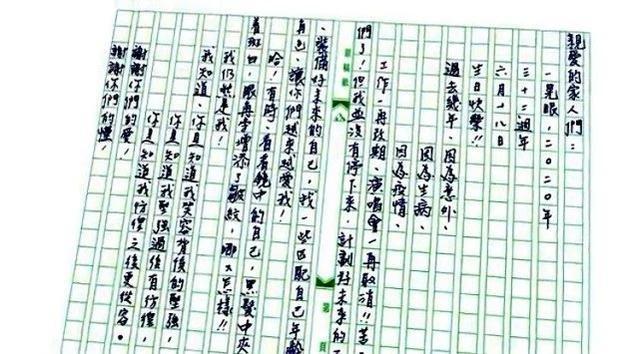 親愛的家人們：
一晃眼，二〇二〇年
三十三週年
六月十八日
生日快樂！！
過去幾年、因為意外、
因為生病、
因為疫情、
工作一再改期、演唱會一再取消！！苦
們了！但我並沒有停下來，計劃好未來的
、裝備好未來的自己，找一些匹配自己年齡
自己、讓你們越來越愛我！
哈！有時，看看鏡中的自己，黑髮中夾
着斑白，眼角又增添了皺紋，哪又怎樣！！
我仍然是我！
我知道、你真知道我笑容背後的堅強，
你真知道我堅強過後有彷徨，
你真知道我彷徨之後更從容。
謝謝你們的愛！
謝謝你們的懂！